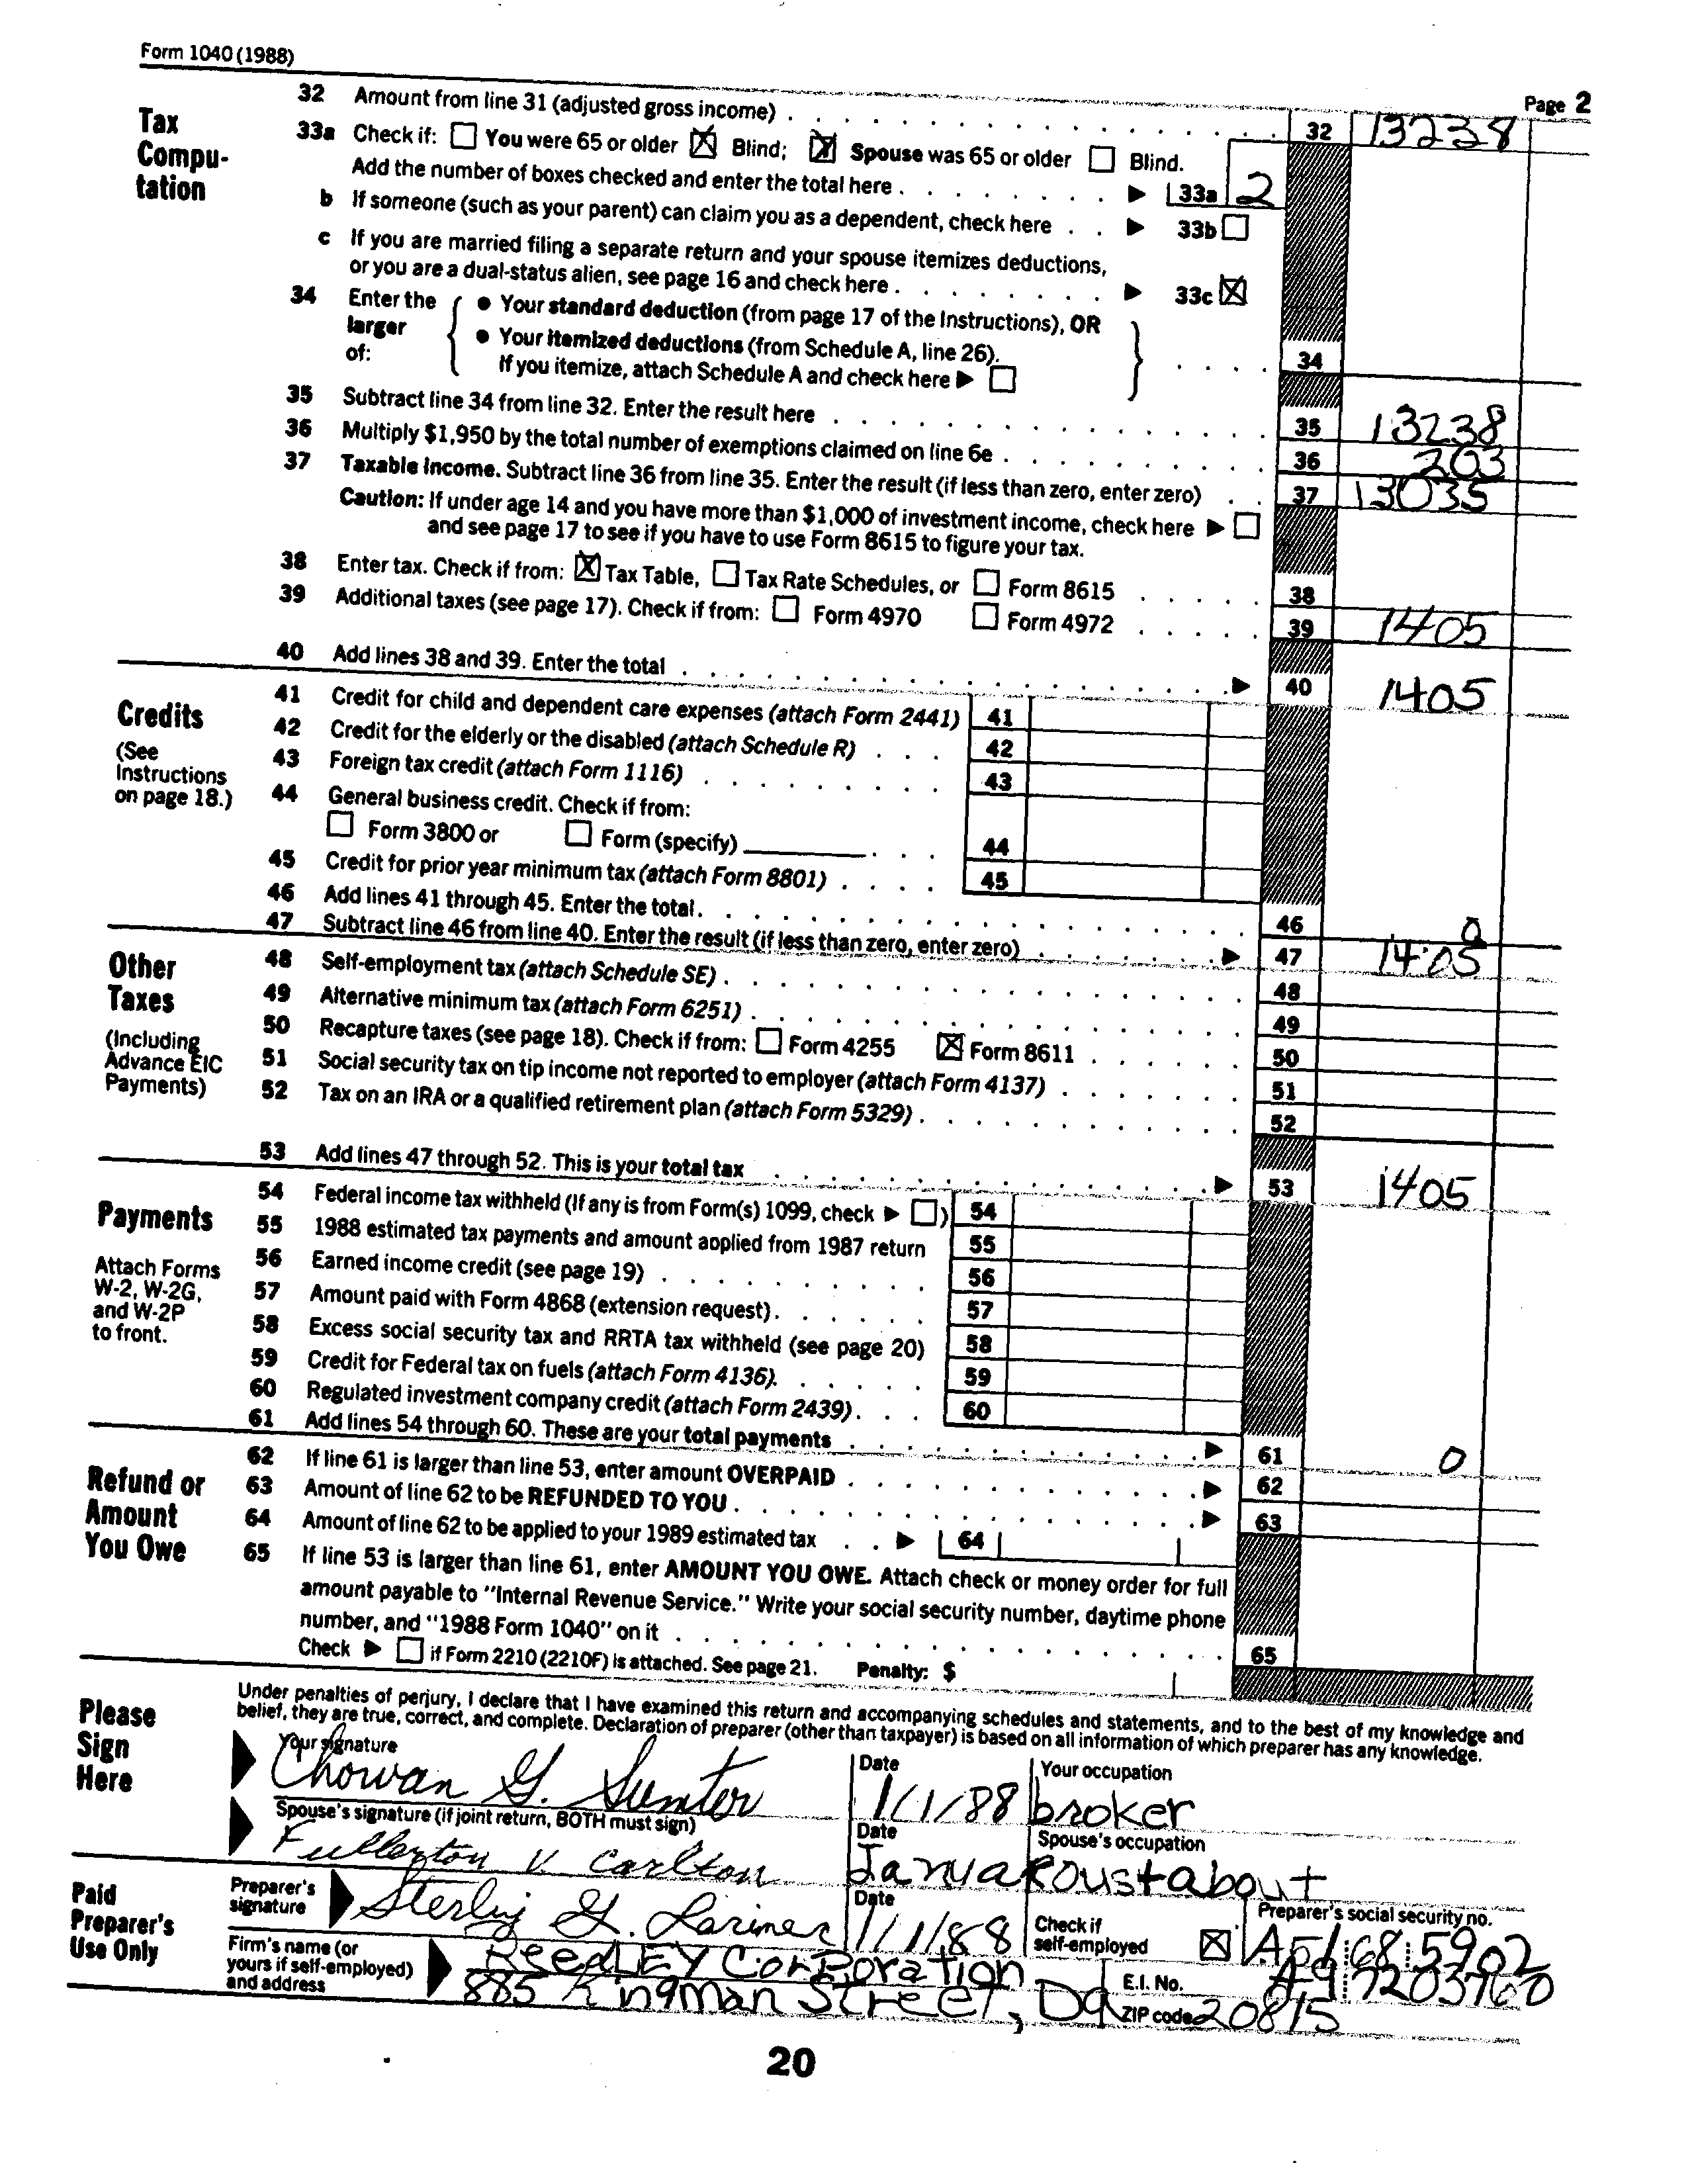 Form 1040 (1988)
Page 2
Tax Compu-tation
32 Amount from line 31 (adjusted gross income) . . . 32 13238
33a Check if: ☐ You were 65 or older ☒ Blind; ☒ Spouse was 65 or older ☐ Blind.
Add the number of boxes checked and enter the total here . . . ▶ 33a 2
b If someone (such as your parent) can claim you as a dependent, check here . . ▶ 33b ☐
c If you are married filing a separate return and your spouse itemizes deductions,
or you are a dual-status alien, see page 16 and check here . . . ▶ 33c ☒
34 Enter the larger of: { ● Your standard deduction (from page 17 of the Instructions), OR
● Your itemized deductions (from Schedule A, line 26).
If you itemize, attach Schedule A and check here ▶ ☐ } . . . . 34
35 Subtract line 34 from line 32. Enter the result here . . . 35 13238
36 Multiply $1,950 by the total number of exemptions claimed on line 6e . . . 36 203
37 Taxable income. Subtract line 36 from line 35. Enter the result (if less than zero, enter zero) . . 37 13035
Caution: If under age 14 and you have more than $1,000 of investment income, check here ▶ ☐
and see page 17 to see if you have to use Form 8615 to figure your tax.
38 Enter tax. Check if from: ☒ Tax Table, ☐ Tax Rate Schedules, or ☐ Form 8615 . . . 38
39 Additional taxes (see page 17). Check if from: ☐ Form 4970 ☐ Form 4972 . . . 39 1405
40 Add lines 38 and 39. Enter the total . . . ▶ 40 1405
Credits
(See Instructions on page 18.)
41 Credit for child and dependent care expenses (attach Form 2441) 41
42 Credit for the elderly or the disabled (attach Schedule R) . . . 42
43 Foreign tax credit (attach Form 1116) . . . 43
44 General business credit. Check if from:
☐ Form 3800 or ☐ Form (specify) . . . 44
45 Credit for prior year minimum tax (attach Form 8801) . . . . 45
46 Add lines 41 through 45. Enter the total . . . 46 0
47 Subtract line 46 from line 40. Enter the result (if less than zero, enter zero) . . . ▶ 47 1405
Other Taxes
(Including Advance EIC Payments)
48 Self-employment tax (attach Schedule SE) . . . 48
49 Alternative minimum tax (attach Form 6251) . . . 49
50 Recapture taxes (see page 18). Check if from: ☐ Form 4255 ☒ Form 8611 . . . 50
51 Social security tax on tip income not reported to employer (attach Form 4137) . . . 51
52 Tax on an IRA or a qualified retirement plan (attach Form 5329) . . . 52
53 Add lines 47 through 52. This is your total tax . . . ▶ 53 1405
Payments
Attach Forms W-2, W-2G, and W-2P to front.
54 Federal income tax withheld (If any is from Form(s) 1099, check ▶ ☐) 54
55 1988 estimated tax payments and amount applied from 1987 return 55
56 Earned income credit (see page 19) . . . 56
57 Amount paid with Form 4868 (extension request) . . . 57
58 Excess social security tax and RRTA tax withheld (see page 20) 58
59 Credit for Federal tax on fuels (attach Form 4136) . . . 59
60 Regulated investment company credit (attach Form 2439) . . . 60
61 Add lines 54 through 60. These are your total payments . . . ▶ 61 0
Refund or Amount You Owe
62 If line 61 is larger than line 53, enter amount OVERPAID . . . ▶ 62
63 Amount of line 62 to be REFUNDED TO YOU . . . ▶ 63
64 Amount of line 62 to be applied to your 1989 estimated tax . . ▶ 64
65 If line 53 is larger than line 61, enter AMOUNT YOU OWE. Attach check or money order for full
amount payable to "Internal Revenue Service." Write your social security number, daytime phone
number, and "1988 Form 1040" on it . . . 65
Check ▶ ☐ if Form 2210 (2210F) is attached. See page 21. Penalty: $
Please Sign Here
Under penalties of perjury, I declare that I have examined this return and accompanying schedules and statements, and to the best of my knowledge and
belief, they are true, correct, and complete. Declaration of preparer (other than taxpayer) is based on all information of which preparer has any knowledge.
Your signature Date Your occupation
Chowan G. Sumter 1/1/88 broker
Spouse's signature (if joint return, BOTH must sign) Date Spouse's occupation
Fullerton V. Carlton Janua Roustabout
Paid Preparer's Use Only
Preparer's signature Sterling G. Larimer Date 1/1/88 Check if self-employed ☒ Preparer's social security no. A51 68 5902
Firm's name (or yours if self-employed) and address
Reedley Corporation E.I. No. A9 7203760
885 Kingman Street, Da ZIP code 20815
20